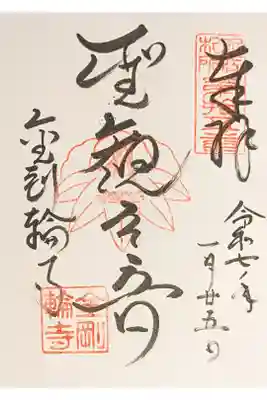 奉拝
令和七年
一月廿五日
聖観
金剛輪寺
金剛
輪寺